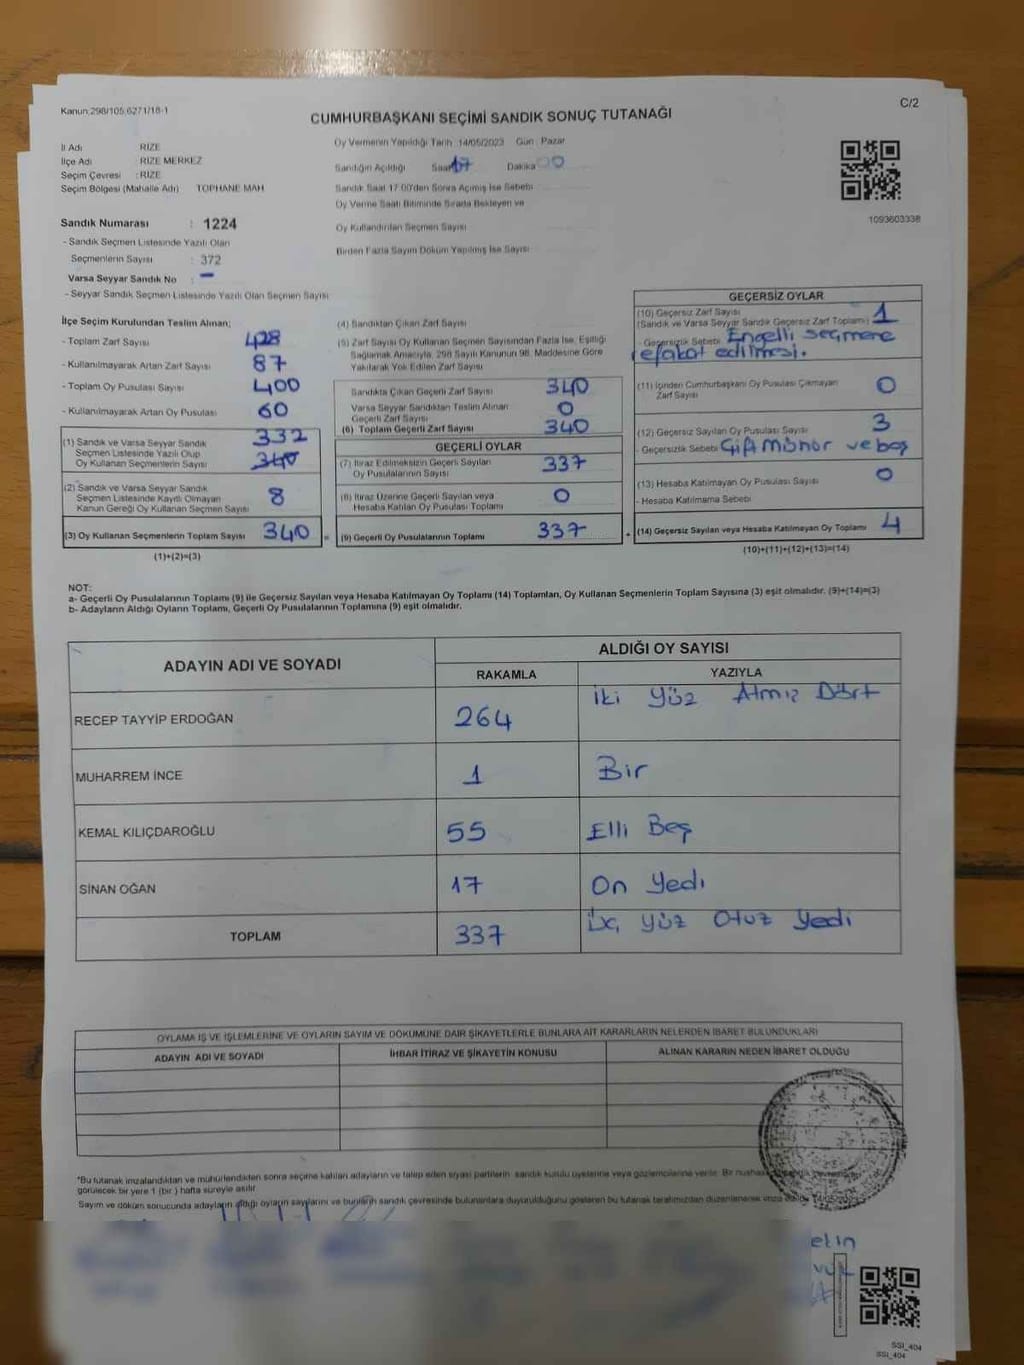 Kanun:298/105,6271/18-1
C/2
CUMHURBAŞKANI SEÇİMİ SANDIK SONUÇ TUTANAĞI
İl Adı RİZE
İlçe Adı : RİZE MERKEZ
Seçim Çevresi : RİZE
Seçim Bölgesi (Mahalle Adı) TOPHANE MAH
Oy Vermenin Yapıldığı Tarih 14/05/2023 Gün Pazar
Sandığın Açıldığı Saat 17 Dakika 00
Sandık Saat 17.00'den Sonra Açılmış İse Sebebi
Oy Verme Saati Bitiminde Sırada Bekleyen ve
Oy Kullandırılan Seçmen Sayısı
Birden Fazla Sayım Döküm Yapılmış İse Sayısı
1093603338
Sandık Numarası : 1224
- Sandık Seçmen Listesinde Yazılı Olan
Seçmenlerin Sayısı : 372
Varsa Seyyar Sandık No : -
- Seyyar Sandık Seçmen Listesinde Yazılı Olan Seçmen Sayısı
İlçe Seçim Kurulundan Teslim Alınan;
- Toplam Zarf Sayısı 428
- Kullanılmayarak Artan Zarf Sayısı 87
- Toplam Oy Pusulası Sayısı 400
- Kullanılmayarak Artan Oy Pusulası 60
(1) Sandık ve Varsa Seyyar Sandık 332
Seçmen Listesinde Yazılı Olup
Oy Kullanan Seçmenlerin Sayısı 340
(2) Sandık ve Varsa Seyyar Sandık
Seçmen Listesinde Kayıtlı Olmayan
Kanun Gereği Oy Kullanan Seçmen Sayısı 8
(3) Oy Kullanan Seçmenlerin Toplam Sayısı 340 =
(1)+(2)=(3)
(4) Sandıktan Çıkan Zarf Sayısı
(5) Zarf Sayısı Oy Kullanan Seçmen Sayısından Fazla İse, Eşitliği
Sağlamak Amacıyla, 298 Sayılı Kanunun 98. Maddesine Göre
Yakılarak Yok Edilen Zarf Sayısı
Sandıkta Çıkan Geçerli Zarf Sayısı 340
Varsa Seyyar Sandıktan Teslim Alınan
Geçerli Zarf Sayısı 0
(6) Toplam Geçerli Zarf Sayısı 340
GEÇERLİ OYLAR
(7) İtiraz Edilmeksizin Geçerli Sayılan
Oy Pusulalarının Sayısı 337
(8) İtiraz Üzerine Geçerli Sayılan veya
Hesaba Katılan Oy Pusulası Toplamı 0
(9) Geçerli Oy Pusulalarının Toplamı 337 +
GEÇERSİZ OYLAR
(10) Geçersiz Zarf Sayısı
(Sandık ve Varsa Seyyar Sandık Geçersiz Zarf Toplamı) 1
- Geçersizlik Sebebi Engelli seçmene
refakat edilmesi.
(11) İçinden Cumhurbaşkanı Oy Pusulası Çıkmayan
Zarf Sayısı 0
(12) Geçersiz Sayılan Oy Pusulası Sayısı 3
- Geçersizlik Sebebi Çift Mühür ve boş
(13) Hesaba Katılmayan Oy Pusulası Sayısı 0
- Hesaba Katılmama Sebebi
(14) Geçersiz Sayılan veya Hesaba Katılmayan Oy Toplamı 4
(10)+(11)+(12)+(13)=(14)
NOT:
a- Geçerli Oy Pusulalarının Toplamı (9) ile Geçersiz Sayılan veya Hesaba Katılmayan Oy Toplamı (14) Toplamları, Oy Kullanan Seçmenlerin Toplam Sayısına (3) eşit olmalıdır. (9)+(14)=(3)
b- Adayların Aldığı Oyların Toplamı, Geçerli Oy Pusulalarının Toplamına (9) eşit olmalıdır.
ADAYIN ADI VE SOYADI ALDIĞI OY SAYISI
RAKAMLA YAZIYLA
RECEP TAYYİP ERDOĞAN 264 İki Yüz Atmız Dört
MUHARREM İNCE 1 Bir
KEMAL KILIÇDAROĞLU 55 Elli Beş
SİNAN OĞAN 17 On Yedi
TOPLAM 337 Üç Yüz Otuz Yedi
OYLAMA İŞ VE İŞLEMLERİNE VE OYLARIN SAYIM VE DÖKÜMÜNE DAİR ŞİKAYETLERLE BUNLARA AİT KARARLARIN NELERDEN İBARET BULUNDUKLARI
ADAYIN ADI VE SOYADI İHBAR İTİRAZ VE ŞİKAYETİN KONUSU ALINAN KARARIN NEDEN İBARET OLDUĞU
*Bu tutanak imzalandıktan ve mühürlendikten sonra seçime katılan adayların ve talep eden siyasi partilerin sandık kurulu üyelerine veya gözlemcilerine verilir. Bir nüshası
görülecek bir yere 1 (bir) hafta süreyle asılır
Sayım ve döküm sonucunda adayların aldığı oyların sayılarını ve bunların sandık çevresinde bulunanlara duyurulduğunu gösteren bu tutanak tarafımızdan düzenlenerek imza edildi. 14/05/2023
SSI_404
SSI_404